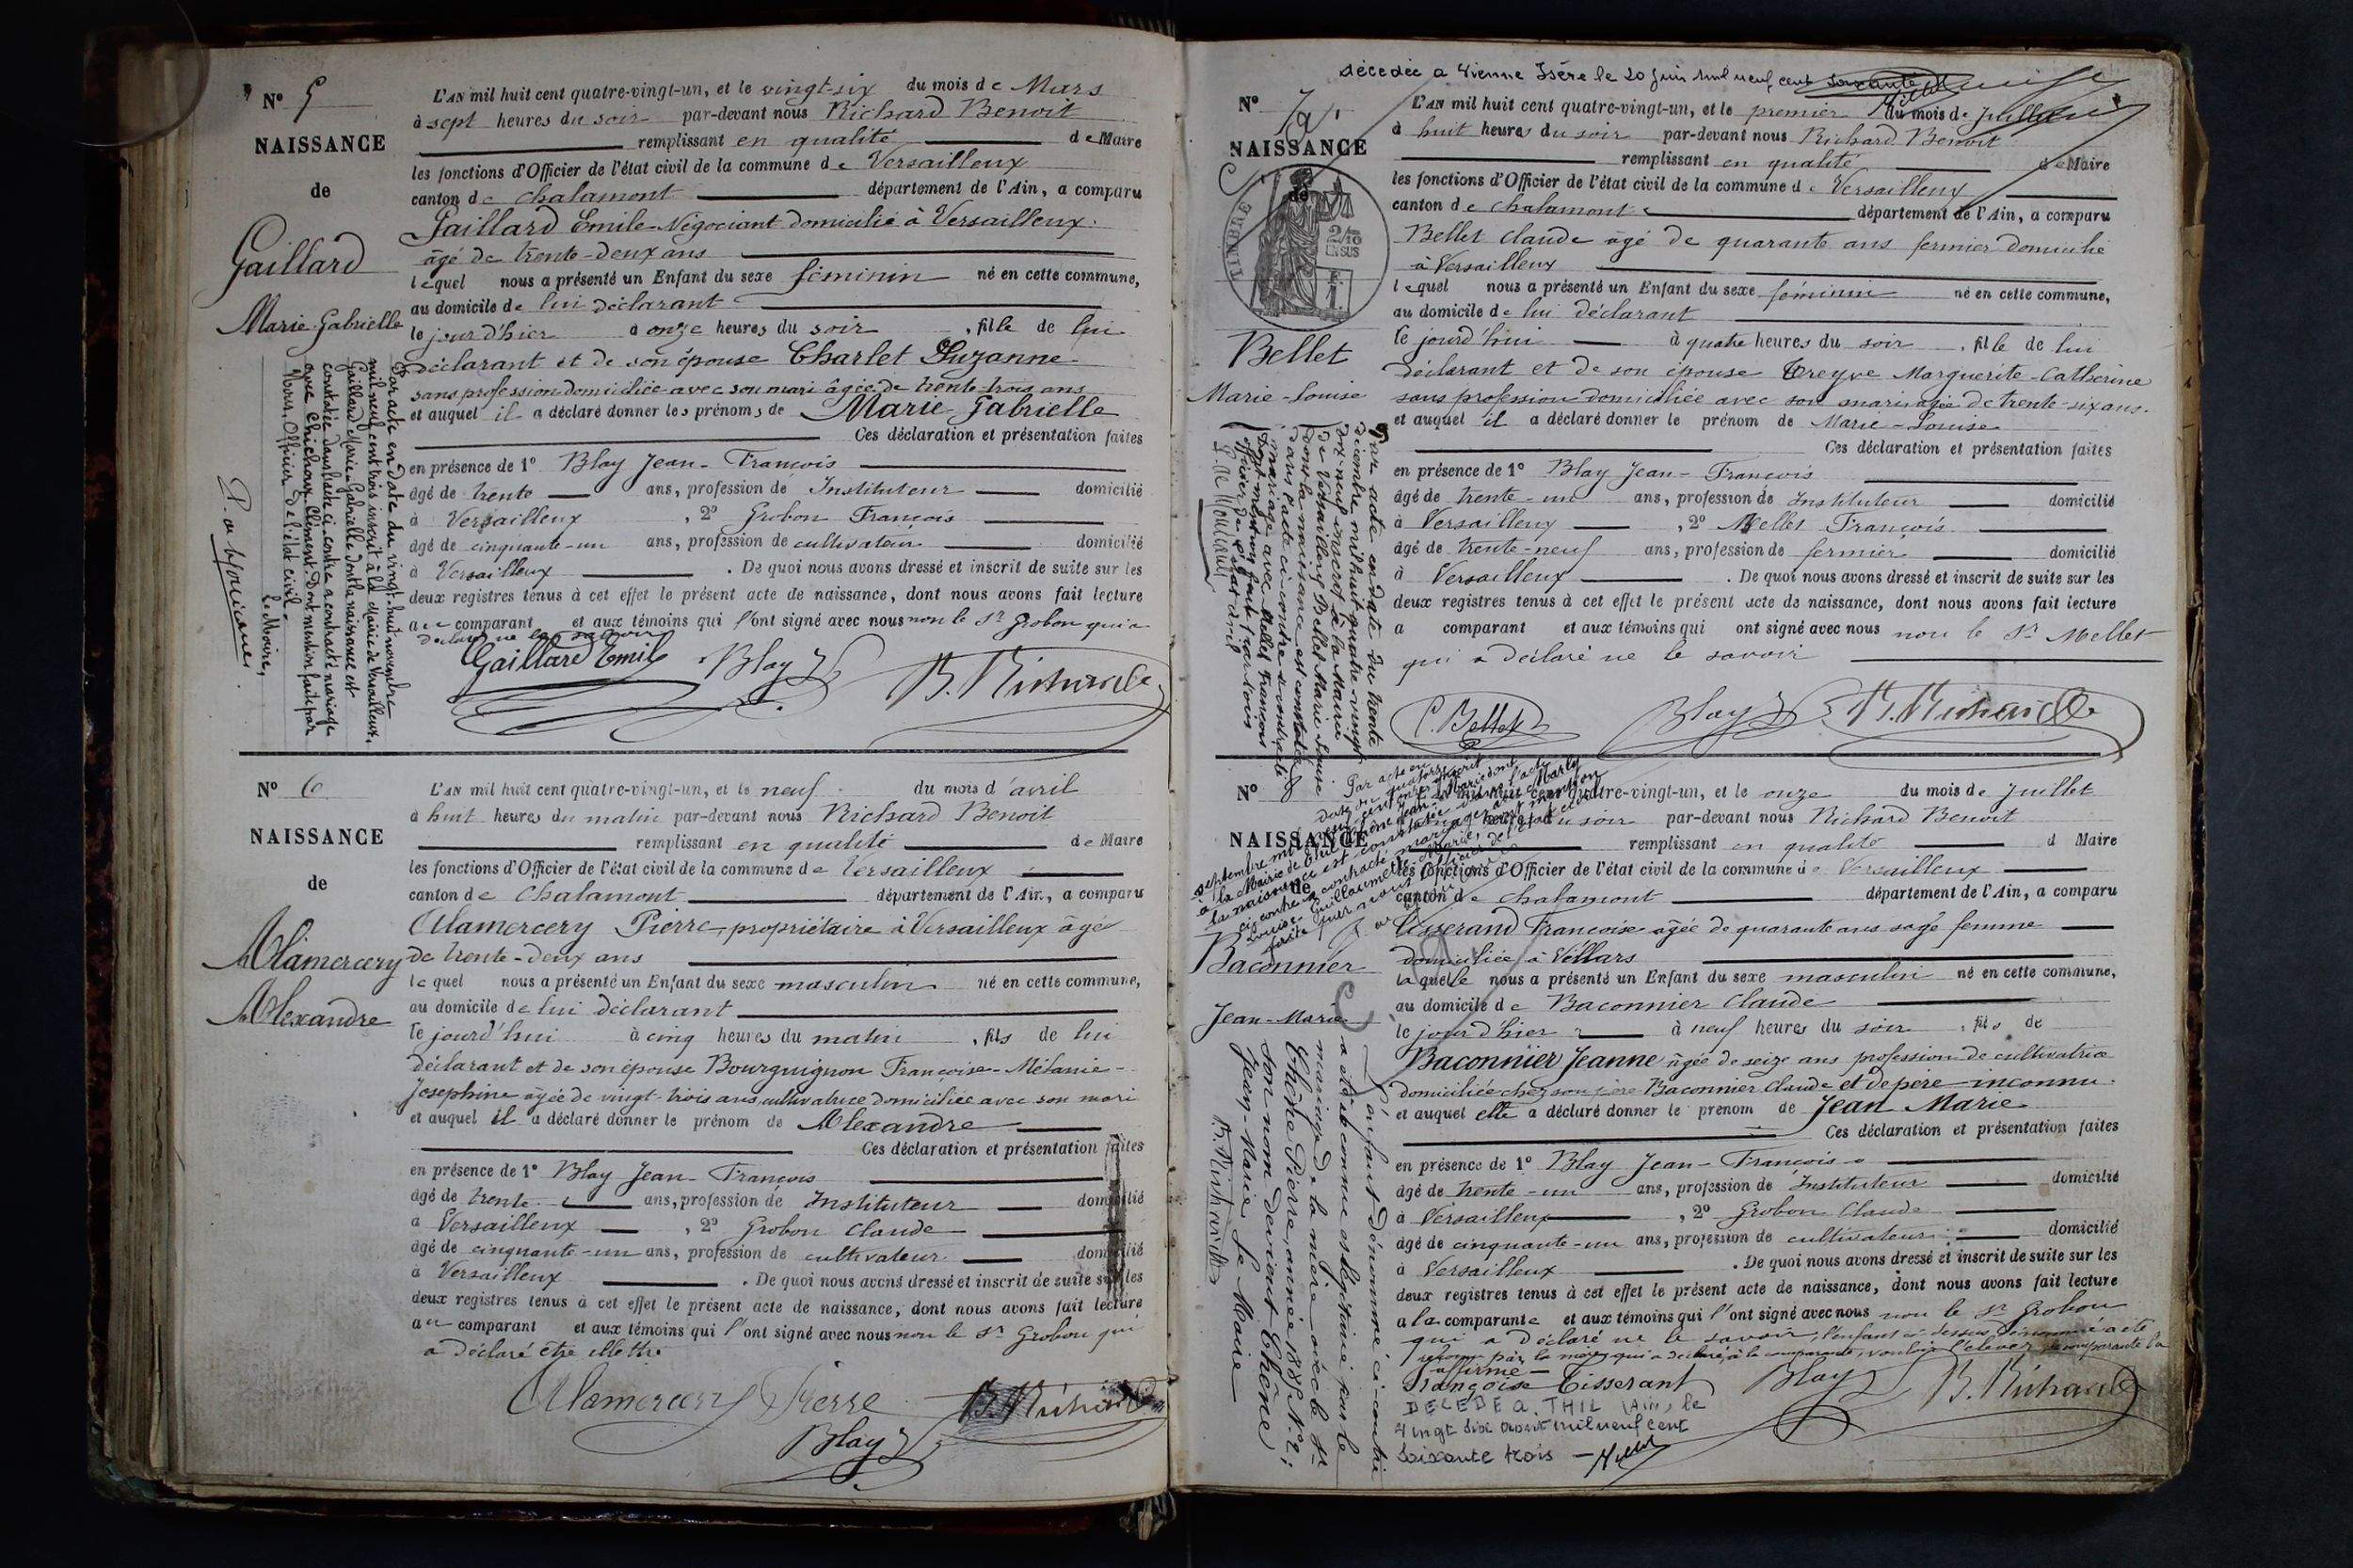 N° 5
NAISSANCE
de
Gaillard
Marie-Gabrielle
Par acte en date du vingt-huit novembre
mil neuf cent trois inscrit à la Mairie de Versailleux,
Gaillard Marie-Gabrielle dont la naissance est
constatée dans l'acte ci-contre a contracté mariage
avec Chichoux Clément. Dont mention faite par
Nous, Officier de l'état civil.
Le Maire,
L'AN mil huit cent quatre-vingt-un, et le vingt-six du mois de Mars
à sept heures du soir par-devant nous Richard Benoit
remplissant en qualité de Maire
les fonctions d'Officier de l'état civil de la commune de Versailleux
canton de Chalamont département de l'Ain, a comparu
Gaillard Emile Négociant domicilié à Versailleux
âgé de trente-deux ans
lequel nous a présenté un Enfant du sexe féminin né en cette commune,
au domicile de lui déclarant
le jour d'hier à onze heures du soir, fille de lui
déclarant et de son épouse Charlet Suzanne
sans profession domiciliée avec son mari âgée de trente-trois ans
et auquel il a déclaré donner les prénoms de Marie Gabrielle
Ces déclaration et présentation faites
en présence de 1° Blay Jean-François
âgé de trente ans, profession de Instituteur domicilié
à Versailleux, 2° Grobon François
âgé de cinquante-un ans, profession de cultivateur domicilié
à Versailleux. De quoi nous avons dressé et inscrit de suite sur les
deux registres tenus à cet effet le présent acte de naissance, dont nous avons fait lecture
au comparant et aux témoins qui l'ont signé avec nous non le Sr Grobon qui a
déclaré ne le savoir
Gaillard Emile Blay B. Richard
N° 6
NAISSANCE
de
Alamercery
Alexandre
L'AN mil huit cent quatre-vingt-un, et le neuf du mois d'avril
à huit heures du matin par-devant nous Richard Benoit
remplissant en qualité de Maire
les fonctions d'Officier de l'état civil de la commune de Versailleux
canton de Chalamont département de l'Ain, a comparu
Alamercery Pierre propriétaire à Versailleux âgé
de trente-deux ans
lequel nous a présenté un Enfant du sexe masculin né en cette commune,
au domicile de lui déclarant
le jourd'hui à cinq heures du matin, fils de lui
déclarant et de son épouse Bourguignon Françoise-Mélanie-
Josephine âgée de vingt-trois ans cultivatrice domiciliée avec son mari
et auquel il a déclaré donner le prénom de Alexandre
Ces déclaration et présentation faites
en présence de 1° Blay Jean-François
âgé de trente ans, profession de Instituteur domicilié
à Versailleux, 2° Grobon Claude
âgé de cinquante-un ans, profession de cultivateur domicilié
à Versailleux. De quoi nous avons dressé et inscrit de suite sur les
deux registres tenus à cet effet le présent acte de naissance, dont nous avons fait lecture
au comparant et aux témoins qui l'ont signé avec nous non le Sr Grobon qui
a déclaré être illettré
Alamercery Pierre B. Richard
Blay
décédée a Vienne Isère le 20 juin mil neuf cent soixante
N° 7
NAISSANCE
de
TIMBRE
2/10
EN SUS
Bellet
Marie-Louise
Par acte en date du trente
décembre mil huit quatre-vingt
dix-neuf inscrit à la Mairie
de Versailleux Bellet Marie-Louise
dont la naissance est constatée
dans l'acte ci-contre a contracté
mariage avec Mellet François
Dont mention faite par nous
officier de l'état civil
L'AN mil huit cent quatre-vingt-un, et le premier du mois de Juillet
à huit heures du soir par-devant nous Richard Benoit
remplissant en qualité de Maire
les fonctions d'Officier de l'état civil de la commune de Versailleux
canton de Chalamont département de l'Ain, a comparu
Bellet Claude âgé de quarante ans fermier domicilié
à Versailleux
lequel nous a présenté un Enfant du sexe féminin né en cette commune,
au domicile de lui déclarant
le jourd'hui à quatre heures du soir, fille de lui
déclarant et de son épouse Treyve Marguerite-Catherine
sans profession domiciliée avec son mari âgée de trente-six ans.
et auquel il a déclaré donner le prénom de Marie-Louise
Ces déclaration et présentation faites
en présence de 1° Blay Jean-François
âgé de trente-un ans, profession de Instituteur domicilié
à Versailleux, 2° Mellet François
âgé de trente-neuf ans, profession de fermier domicilié
à Versailleux. De quoi nous avons dressé et inscrit de suite sur les
deux registres tenus à cet effet le présent acte de naissance, dont nous avons fait lecture
a comparant et aux témoins qui ont signé avec nous non le Sr Mellet
qui a déclaré ne le savoir
C. Bellet Blay B. Richard
N°
NAISSANCE
de
Baconnier
Jean-Marie
L'enfant dénommé ci-contre
a été reconnu et légitimé par le
mariage de la mère avec le Sr
Chêne Pierre, année 1882 N° 2;
son nom devient Chêne
Jean-Marie Le Maire
B. Richard
quatre-vingt-un, et le onze du mois de Juillet
du soir par-devant nous Richard Benoit
remplissant en qualité d Maire
les fonctions d'Officier de l'état civil de la commune de Versailleux
canton de Chalamont département de l'Ain, a comparu
Tisserand Françoise âgée de quarante ans sage femme
domiciliée à Villars
laquelle nous a présenté un Enfant du sexe masculin né en cette commune,
au domicile de Baconnier Claude
le jour d'hier à neuf heures du soir, fils de
Baconnier Jeanne âgée de seize ans profession de cultivatrice
domiciliée chez son père Baconnier Claude et de père inconnu.
et auquel elle a déclaré donner le prénom de Jean Marie
Ces déclaration et présentation faites
en présence de 1° Blay Jean-François
âgé de trente-un ans, profession de Instituteur domicilié
à Versailleux, 2° Grobon Claude
âgé de cinquante-un ans, profession de cultivateur domicilié
à Versailleux. De quoi nous avons dressé et inscrit de suite sur les
deux registres tenus à cet effet le présent acte de naissance, dont nous avons fait lecture
a la comparante et aux témoins qui l'ont signé avec nous non le Sr Grobon
qui a déclaré ne le savoir, l'enfant ci-dessus dénommé a été
reconnu par la mère qui a déclaré à la comparante, vouloir l'élever, la comparante l'a
affirmé
Françoise Tisserant Blay B. Richard
DECEDE a THIL (Ain) le
vingt six août mil neuf cent
soixante trois